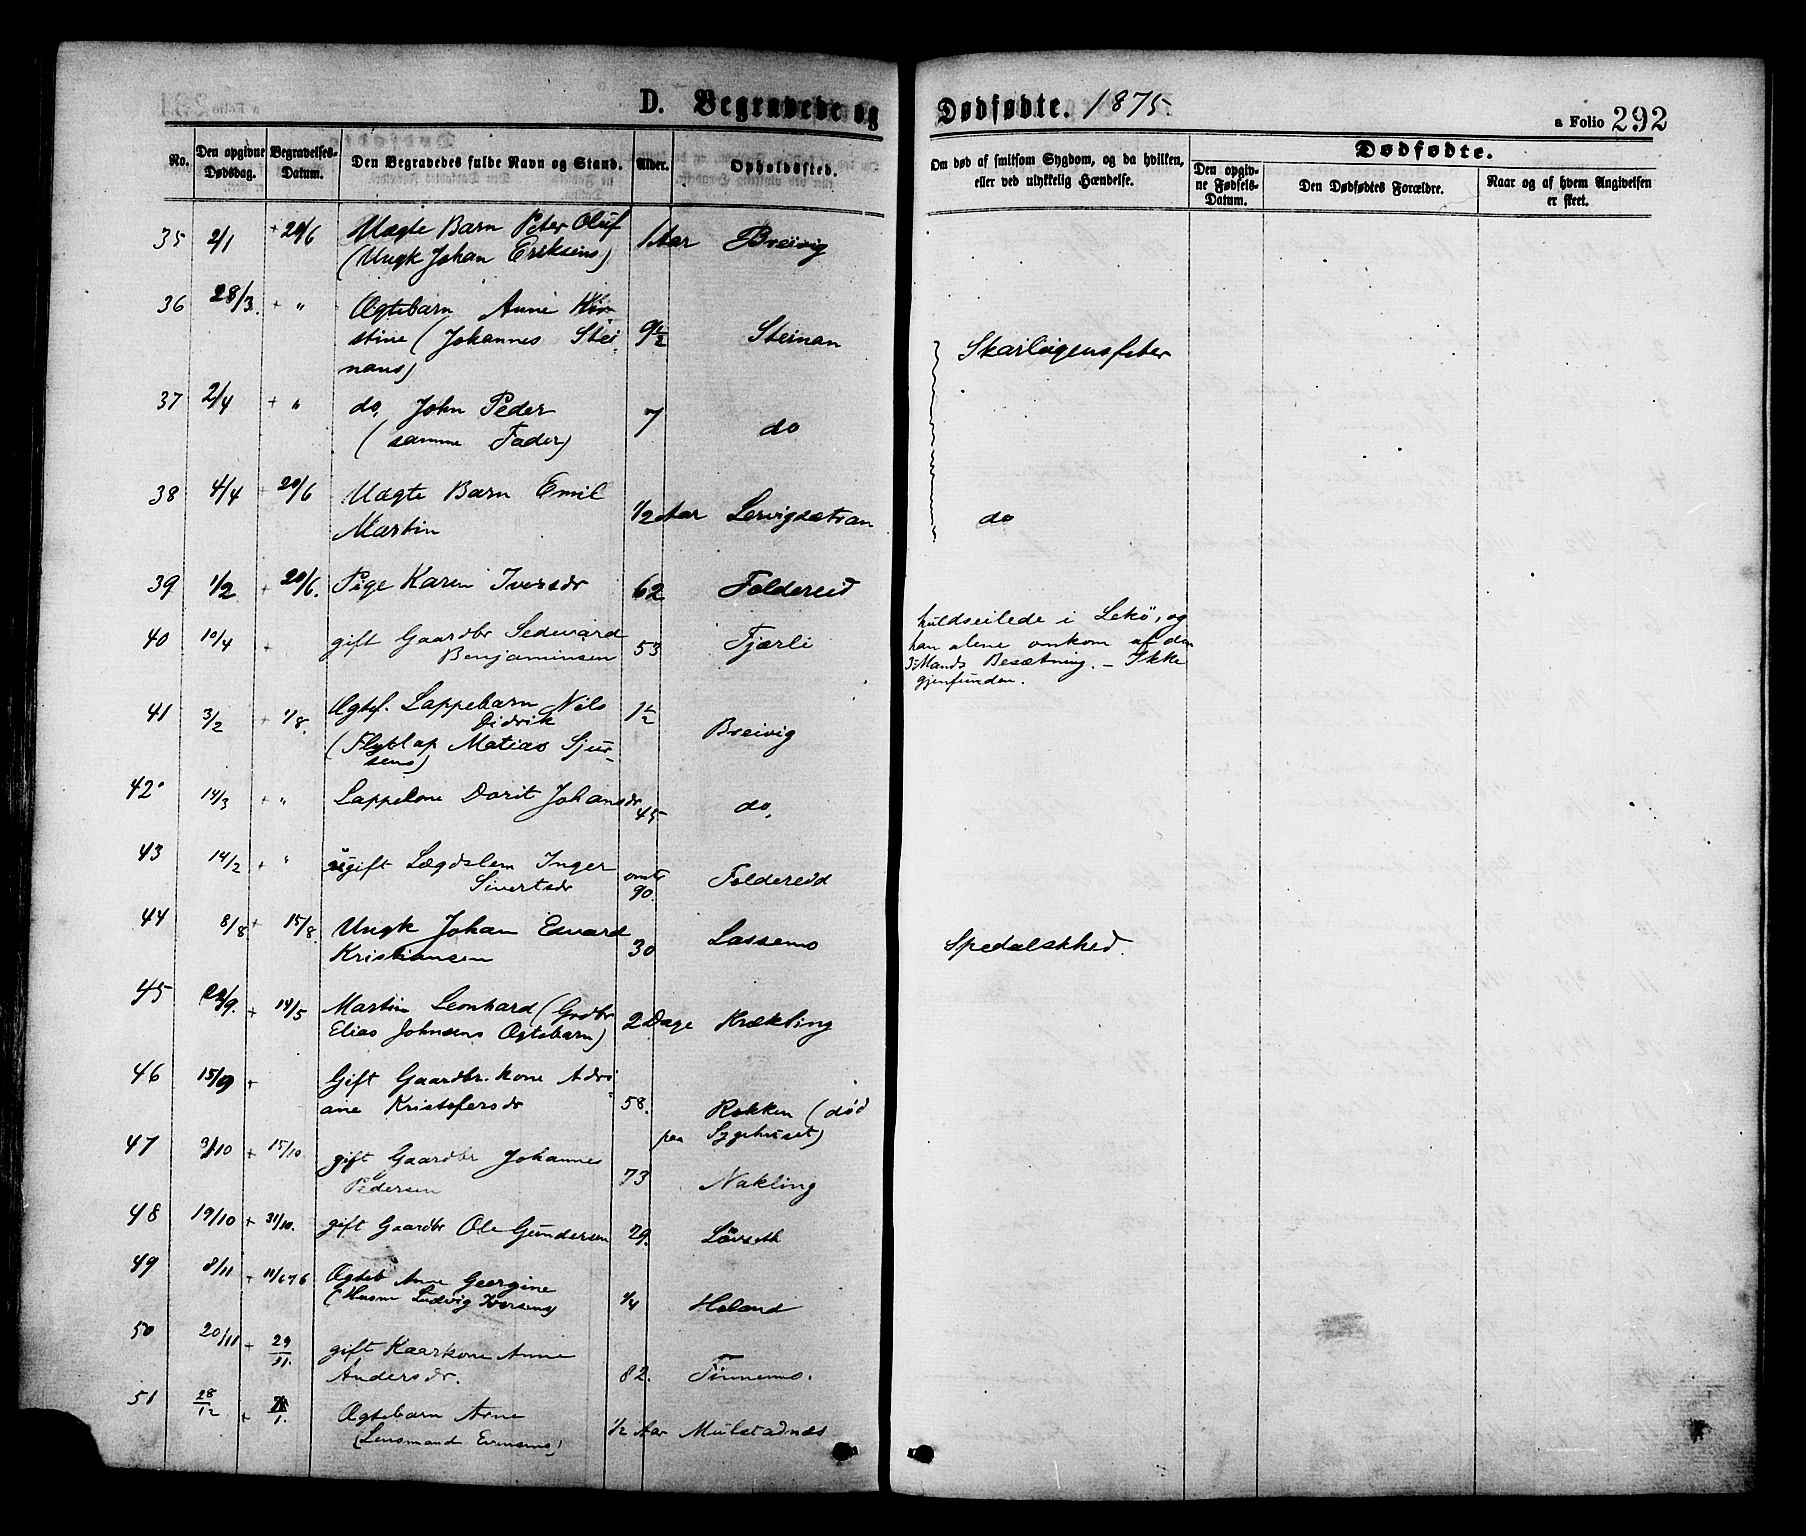 D. Begravede og Dødfødte. 1875 a Folio 292
No.
Den opgivne Dødsdag.
Begravelses-Datum.
Den Begravedes fulde Navn og Stand.
Alder.
Opholdssted.
Om død af smitsom Sygdom, og da hvilken,
eller ved ulykkelig Hændelse.
Dødfødte.
Den opgivne Fødsels-Datum.
Den Dødfødtes Forældre.
Naar og af hvem Angivelsen er skeet.
35 2/1 + 20/6 Uægte Barn Peter Oluf
(Ungk Johan Eriksens) 1 Aar Breivig
36 28/3. + " Ægtebarn Anne Kir-
stine (Johannes Stei- 9 1/2 Steinan Skarlagensfeber
nans)
37 2/4 + " do, John Peder 7 do
(samme Fader)
38 4/4 + 20/6 Uægte Barn Emil
Martin 1/2 Aar Lervigsætran do
39 1/2 + 20/6. Pige Karen Iversdr 62 Foldereid
40 10/4 + gift Gaardbr Sedevard
Benjaminsen 53 Fjærli
huldseilede i Lekö, og
han alene omkom af den
3 Mands Besætning. – Ikke
gjenfunden.
41 3/2 + 1/8. Ægtef. Lappebarn Nils
Didrik 1 1/2 Breivig
(Flytlap Matias Sjur-
sens)
42 14/3 + " Lappekone Dorit Johansdr 45 do,
43 14/2 + " ugift Lægdslem Inger
Sivertsdr omtr 90. Foldereid
44 8/8 + 15/8. Ungk Johan Edvard
Kristiansen 30 Lassemo Spedalskhed.
45 /9. + 14/5 Martin Leonhard (Grdbr
Elias Johnsens Ægtebarn) 2 Dage Krækling
46 15/9 + Gift Gaardbr. kone Adri-
ane Kristofersdr 58. Rokken (död
paa Sygehuset)
47 /10 + 15/10. gift Gaardbr Johannes
Pedersen 73 Nakling
48 19/10 + 31/10. gift Gaardbr Ole Gundersen 29. Lövseth
49 8/11 + 11/6 76 Ægteb Anne Georgine
(Husm Ludvig Iversens) 1/4 Holand
50 20/11 + 29/11. gift Kaarkone Anne
Andersdr. 82. Finnemo.
51 28/12 + /1. Ægtebarn Arne
(Lensmand Evensens) 1/2 Aar Mulstadnes